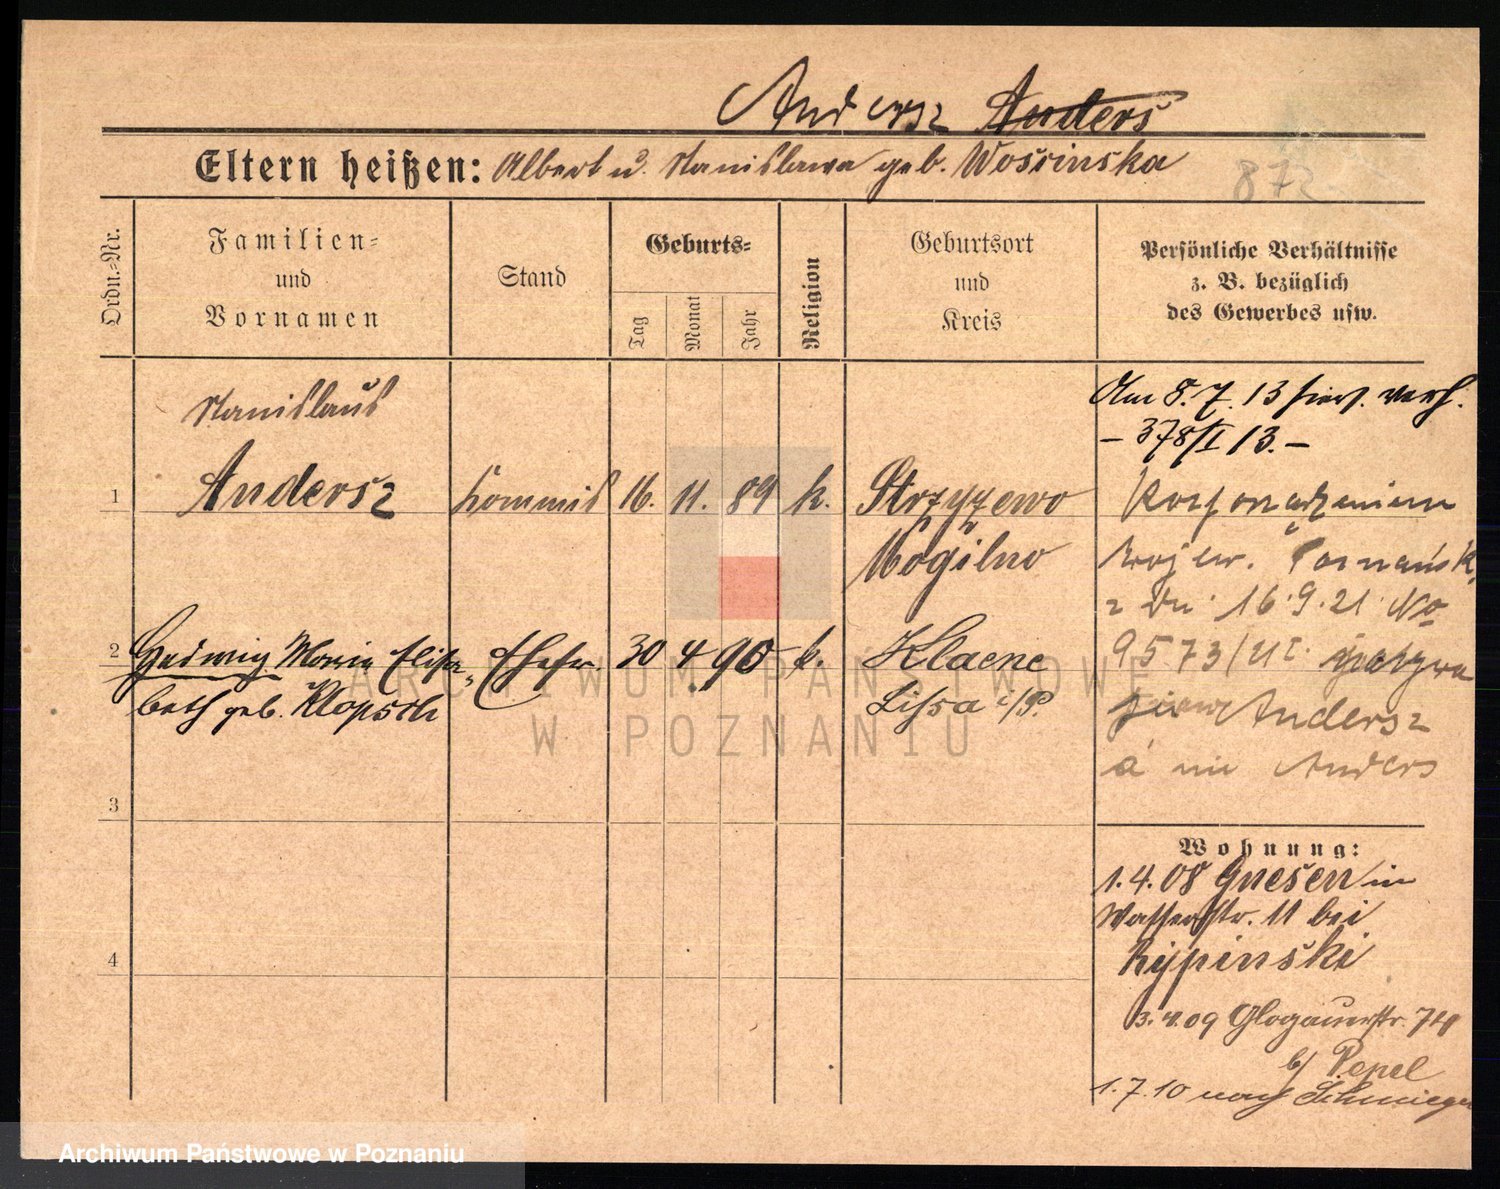 Andersz Anders
Eltern heißen: Albert u. Stanislawa geb. Wosinska
872
Ordn.-Nr.
Familien-
und
Vornamen
Stand
Geburts-
Tag
Monat
Jahr
Religion
Geburtsort
und
Kreis
Persönliche Verhältnisse
z. B. bezüglich
des Gewerbes usw.
Stanislaus
1 Andersz Kommis 16. 11. 89 k. Strzyzewo
Mogilno
2 Hedwig Maria Elisa- Ehefr. 30 4 90 k. Klaene
beth geb. Klopsch Lissa i/P.
3
4
Am 8.7.13 hier verh.
- 378/I 13. -
Rozporządzeniem
Wojew. Poznańsk.
z dn. 16.9.21 No
9573/21 I.
Andersz
a nie Anders
Wohnung:
1.4.08 Gnesen in
Wasserstr. 11 bei
Rypinski
3.4.09 Glogauerstr. 74
b/ Pepel
1.7.10 nach Schmiegel
ARCHIWUM PAŃSTWOWE
W POZNANIU
Archiwum Państwowe w Poznaniu